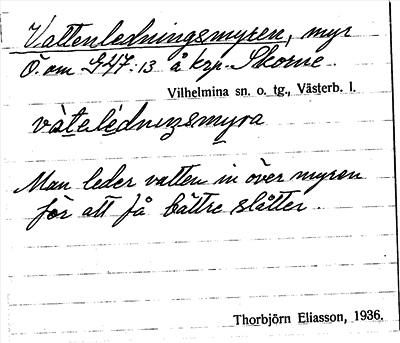 Vattenledningsmyren, myr
Ö. om G47:13 å krp. Skorne.
Vilhelmina sn. o. tg., Västerb. l.
vàtəlédnıŋsmyra
Man leder vatten in över myren
för att få bättre slåtter.
Thorbjörn Eliasson, 1936.